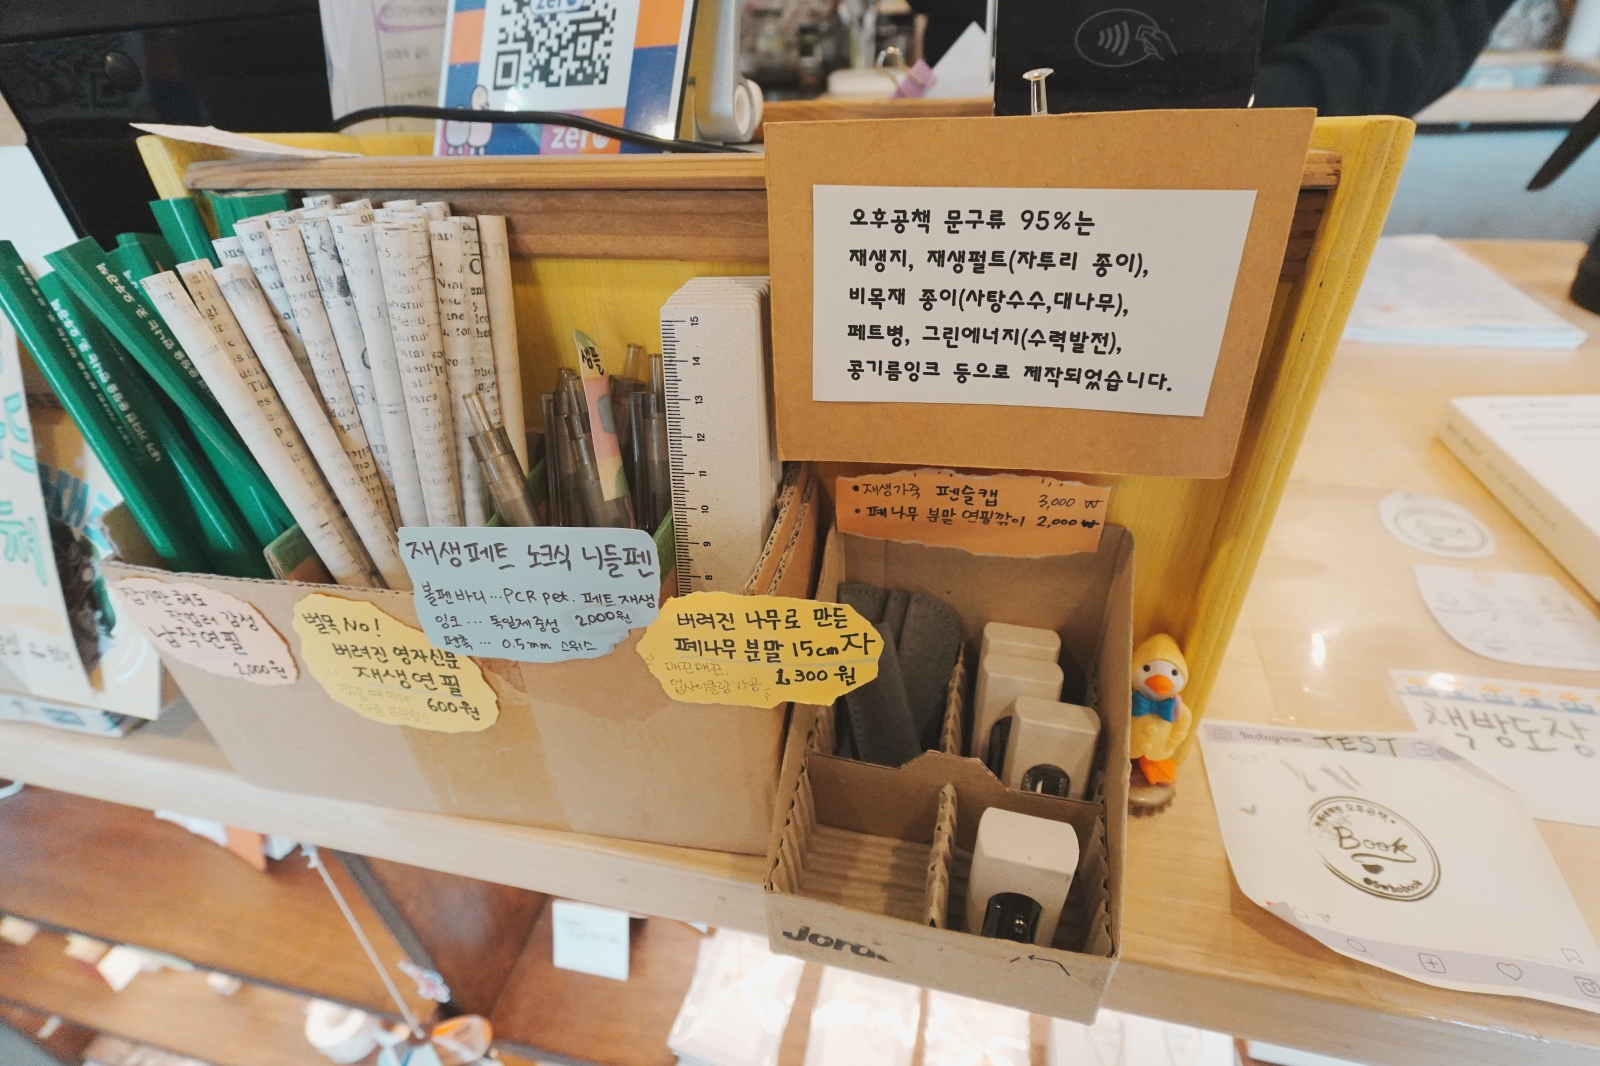 zero
오후공책 문구류 95%는
재생지, 재생펄트(자투리 종이),
비목재 종이(사탕수수,대나무),
페트병, 그린에너지(수력발전),
콩기름잉크 등으로 제작되었습니다.
•재생가죽 펜슬캡 3,000 ₩
•폐나무 분말 연필깎이 2,000 ₩
샘플
15
14
13
12
11
10
9
8
잡기만 해도
작렬러 감성
납작연필
2,000원
벌목 No!
버려진 영자신문
재생연필
600원
재생페트 노크식 니들펜
볼펜바디...PCR pet. 페트재생
잉크... 독일제중성 2,000원
펜촉... 0.5mm 스위스
버려진 나무로 만든
폐나무 분말 15cm 자
매끈매끈
업사이클링 가공 1,300원
Instagram
TEST
책방도장
오후공책
Book